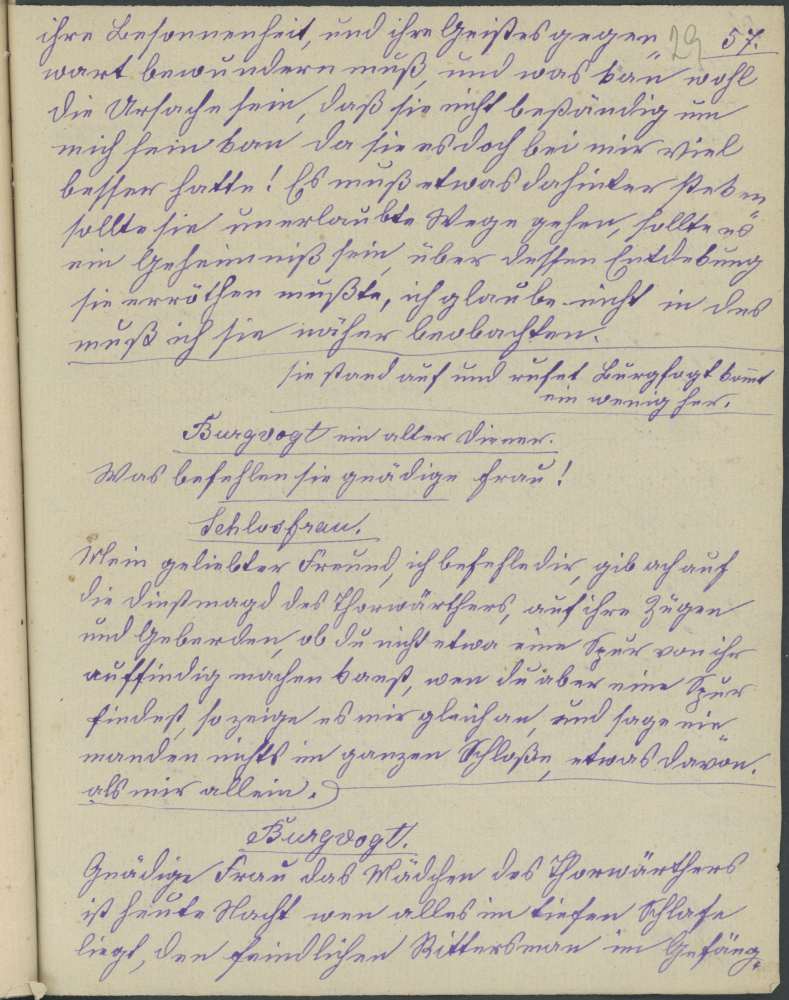 29 57.
ihre Besonnenheit, und ihre Geistesgegen¬
wart bewundern muß, und was kan̅ wohl
die Ursache sein, daß sie nicht beständig um
mich sein kan da sie es doch bei mir viel
besser hatte! Es muß etwas dahinter steken
sollte sie unerlaubte Wege gehen, sollte es
ein Geheimniß sein, über dessen Entdekung
sie erröthen mußte, ich glaube nicht in des
muß ich sie näher beobachten.
sie stand auf und rufet Burgfogt kom̅t
ein wenig her.
Burgvogt ein alter Diener.
Was befehlen sie gnädige Frau!
Schlosfrau.
Mein geliebter Freund, ich befehle dir, gib ach auf
die Dinstmagd des Thorwärthers, auf ihre Zügen
und Geberden, ob du nicht etwa eine Spur von ihr
auffindig machen kanst, wen du aber eine Spur
findest, so zeige es mir gleich an, und sage nie¬
manden nichts im ganzen Schloße, etwas davon.
als mir allein.
Burgvogt.
Gnädige Frau das Mädchen des Thorwärthers
ist heute Nacht wen alles im tiefen Schlafe
liegt, den feindlichen Rittersman im Gefäng¬